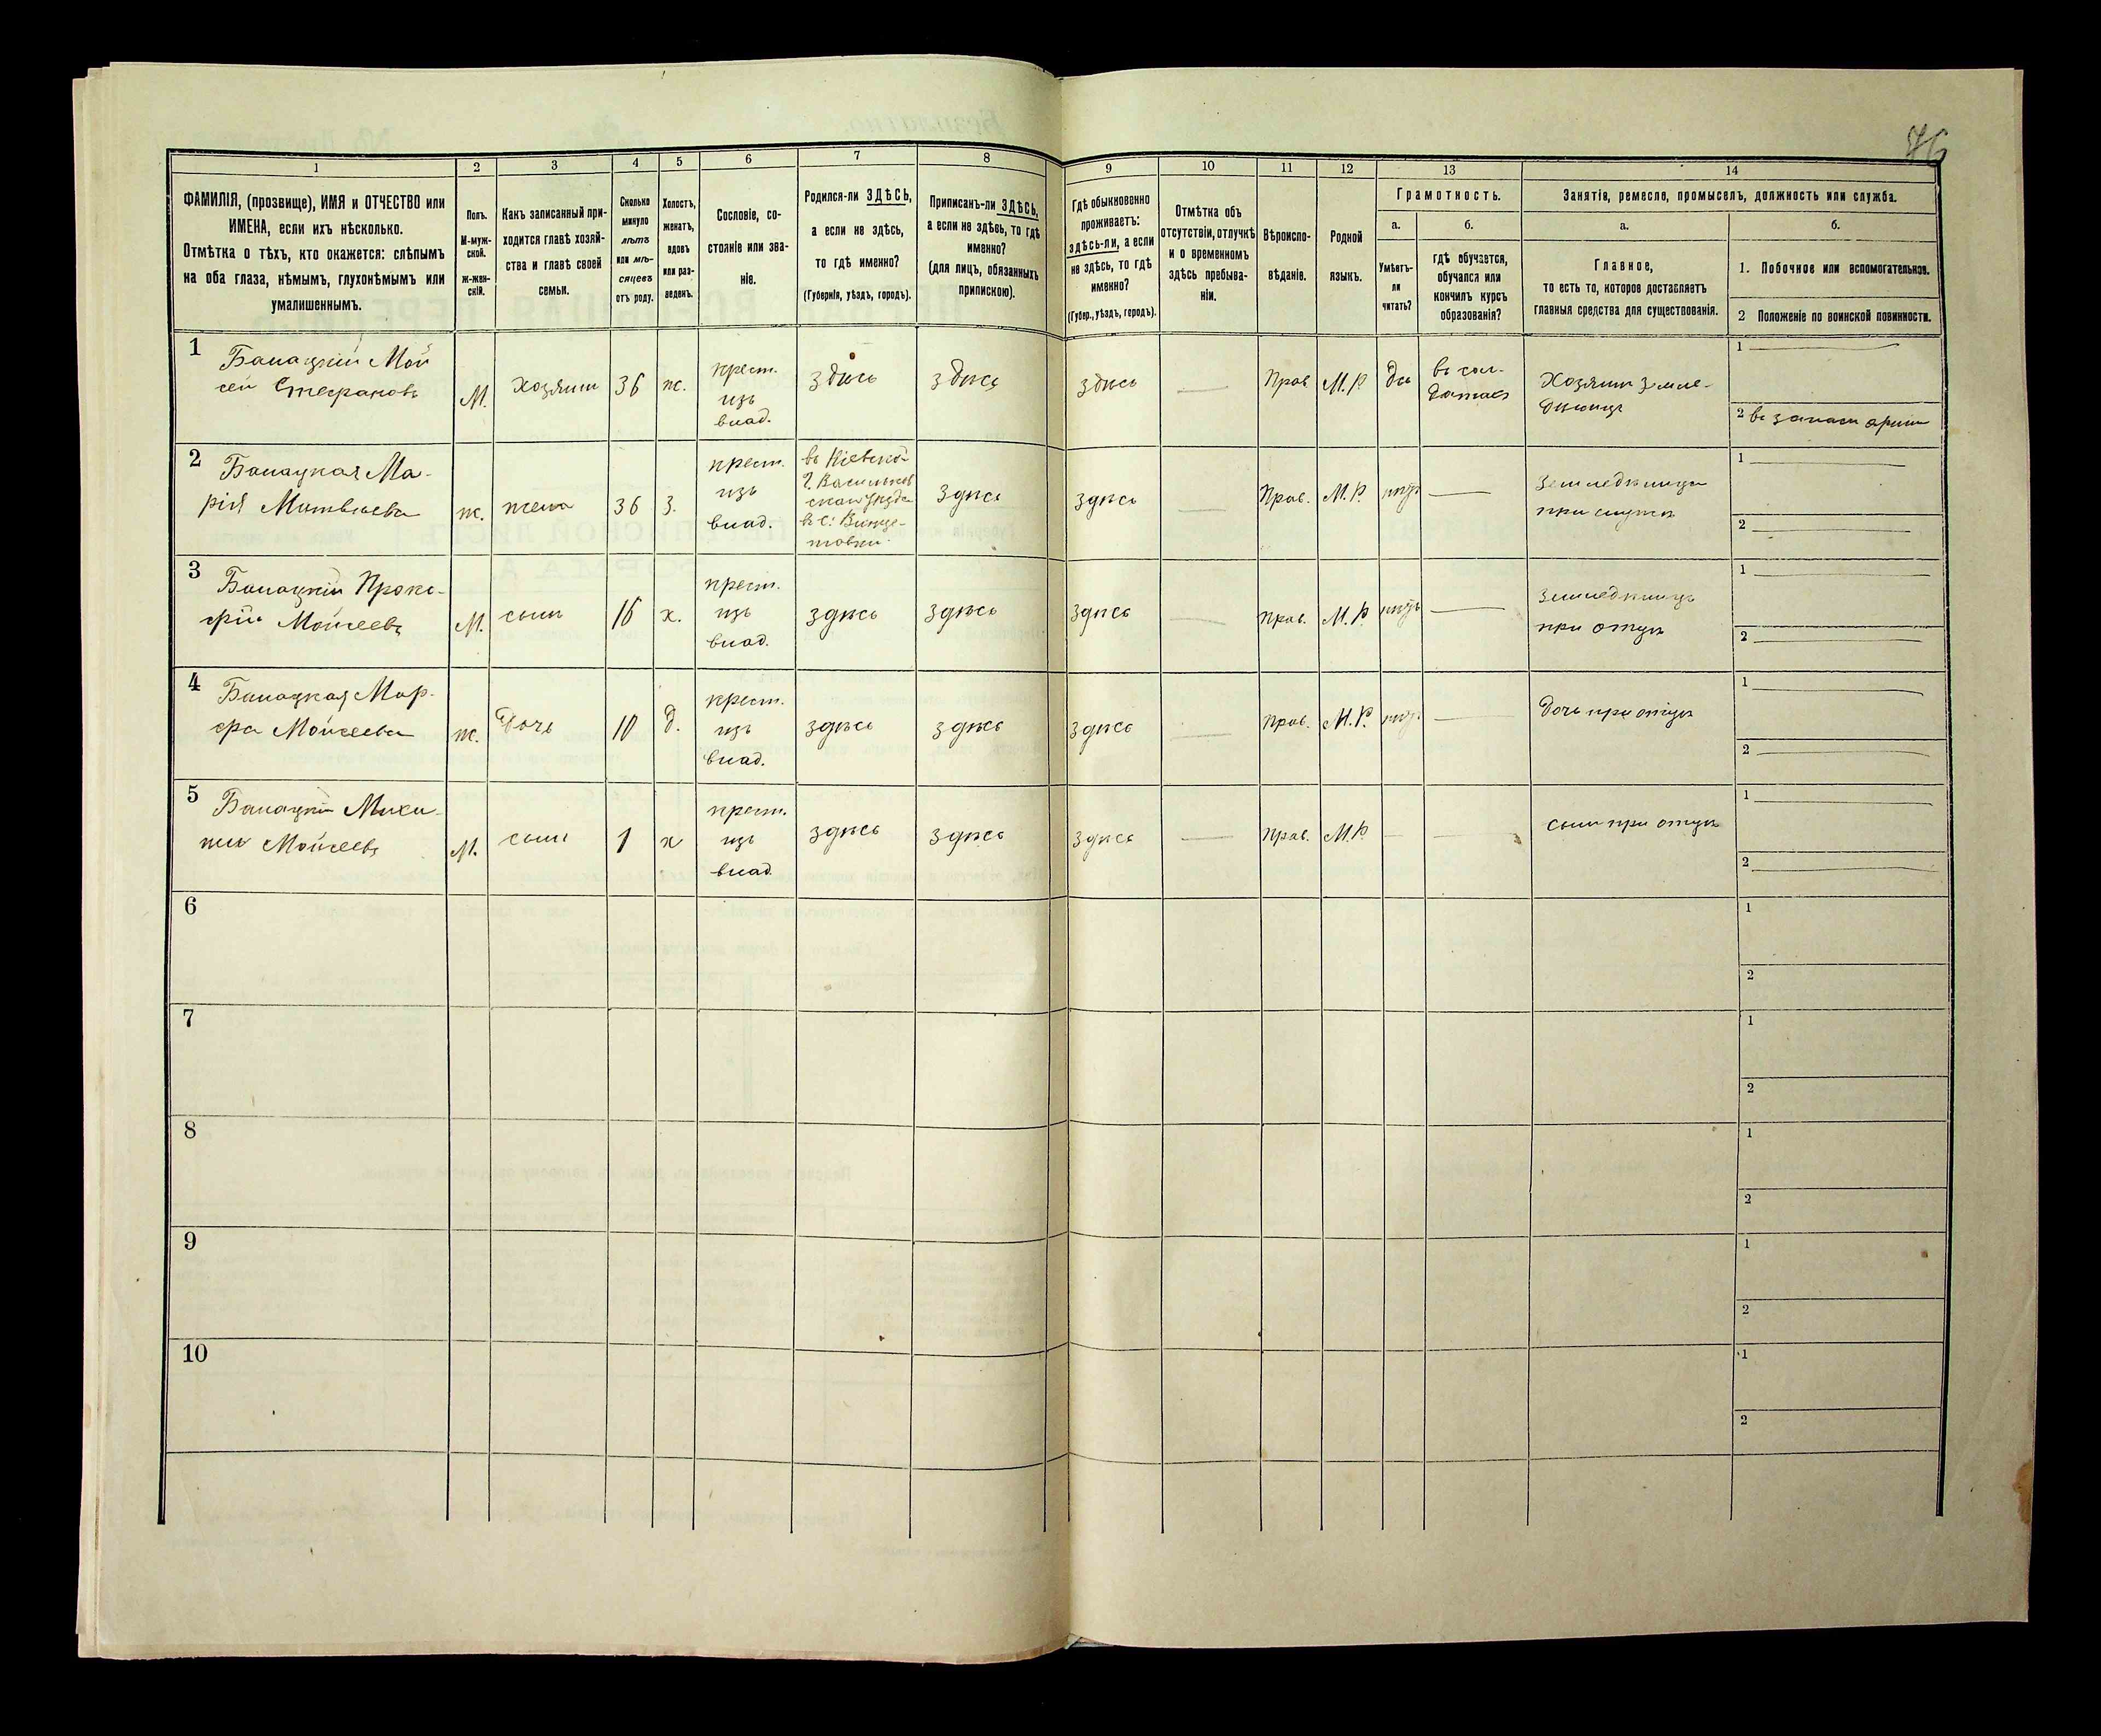 76
1 2 3 4 5 6 7 8 9 10 11 12 13 14
ФАМИЛІЯ, (прозвище), ИМЯ и ОТЧЕСТВО или
ИМЕНА, если ихъ нѣсколько.
Отмѣтка о тѣхъ, кто окажется: слѣпымъ
на оба глаза, нѣмымъ, глухонѣмымъ или
умалишеннымъ.
Полъ.
М-муж-
ской.
ж-жен-
скій.
Какъ записанный при-
ходится главѣ хозяй-
ства и главѣ своей
семьи.
Сколько
минуло
лѣтъ
или мѣ-
сяцевъ
отъ роду.
Холостъ,
женатъ,
вдовъ
или раз-
веденъ.
Сословіе, со-
стояніе или зва-
ніе.
Родился-ли ЗДѢСЬ,
а если не здѣсь,
то гдѣ именно?
(Губернія, уѣздъ, городъ).
Приписанъ-ли ЗДѢСЬ,
а если не здѣсь, то гдѣ
именно?
(для лицъ, обязанныхъ
припискою).
Гдѣ обыкновенно
проживаетъ:
здѣсь-ли, а если
не здѣсь, то гдѣ
именно?
(Губер., уѣздъ, городъ).
Отмѣтка объ
отсутствіи, отлучкѣ
и о временномъ
здѣсь пребыва-
ніи.
Вѣроиспо-
вѣданіе.
Родной
языкъ.
Грамотность.
а.
Умѣетъ-
ли
читать?
б.
гдѣ обучается,
обучался или
кончилъ курсъ
образованія?
Занятія, ремесло, промыселъ, должность или служба.
а.
Главное,
то есть то, которое доставляетъ
главныя средства для существованія.
б.
1. Побочное или вспомогательное.
2 Положеніе по воинской повинности.
1
Мой
сей Стефановъ
М.
Хозяинъ
36
ж.
крест.
изъ
влад.
здѣсь
здѣсь
здѣсь
Прав
М.Р.
да
въ сол-
датахъ
Хозяинъ земле-
дѣлецъ
1
2 въ запасѣ арміи
2
Ма-
рія Матвѣева
ж.
жена
36
з.
крест.
изъ
влад.
въ Кіевской
г. Васильков
скомъ уѣздѣ
здѣсь
здѣсь
Прав.
М.Р.
нѣтъ
при мужѣ
1
2
3
Проко-
фій Моисеевъ
М.
сынъ
16
х.
крест.
изъ
влад.
здѣсь
здѣсь
здѣсь
прав.
М.Р.
нѣтъ
земледѣлецъ
при отцѣ
1
2
4
Мар-
фа Моисеева
ж.
дочь
10
д.
крест.
изъ
влад.
здѣсь
здѣсь
здѣсь
прав.
М.Р.
нѣтъ
дочь при отцѣ
1
2
5
Моисеевъ
М.
сынъ
1
х
крест.
изъ
влад.
здѣсь
здѣсь
здѣсь
прав.
М.Р.
сынъ при отцѣ
1
2
6
1
2
7
1
2
8
1
2
9
1
2
10
1
2